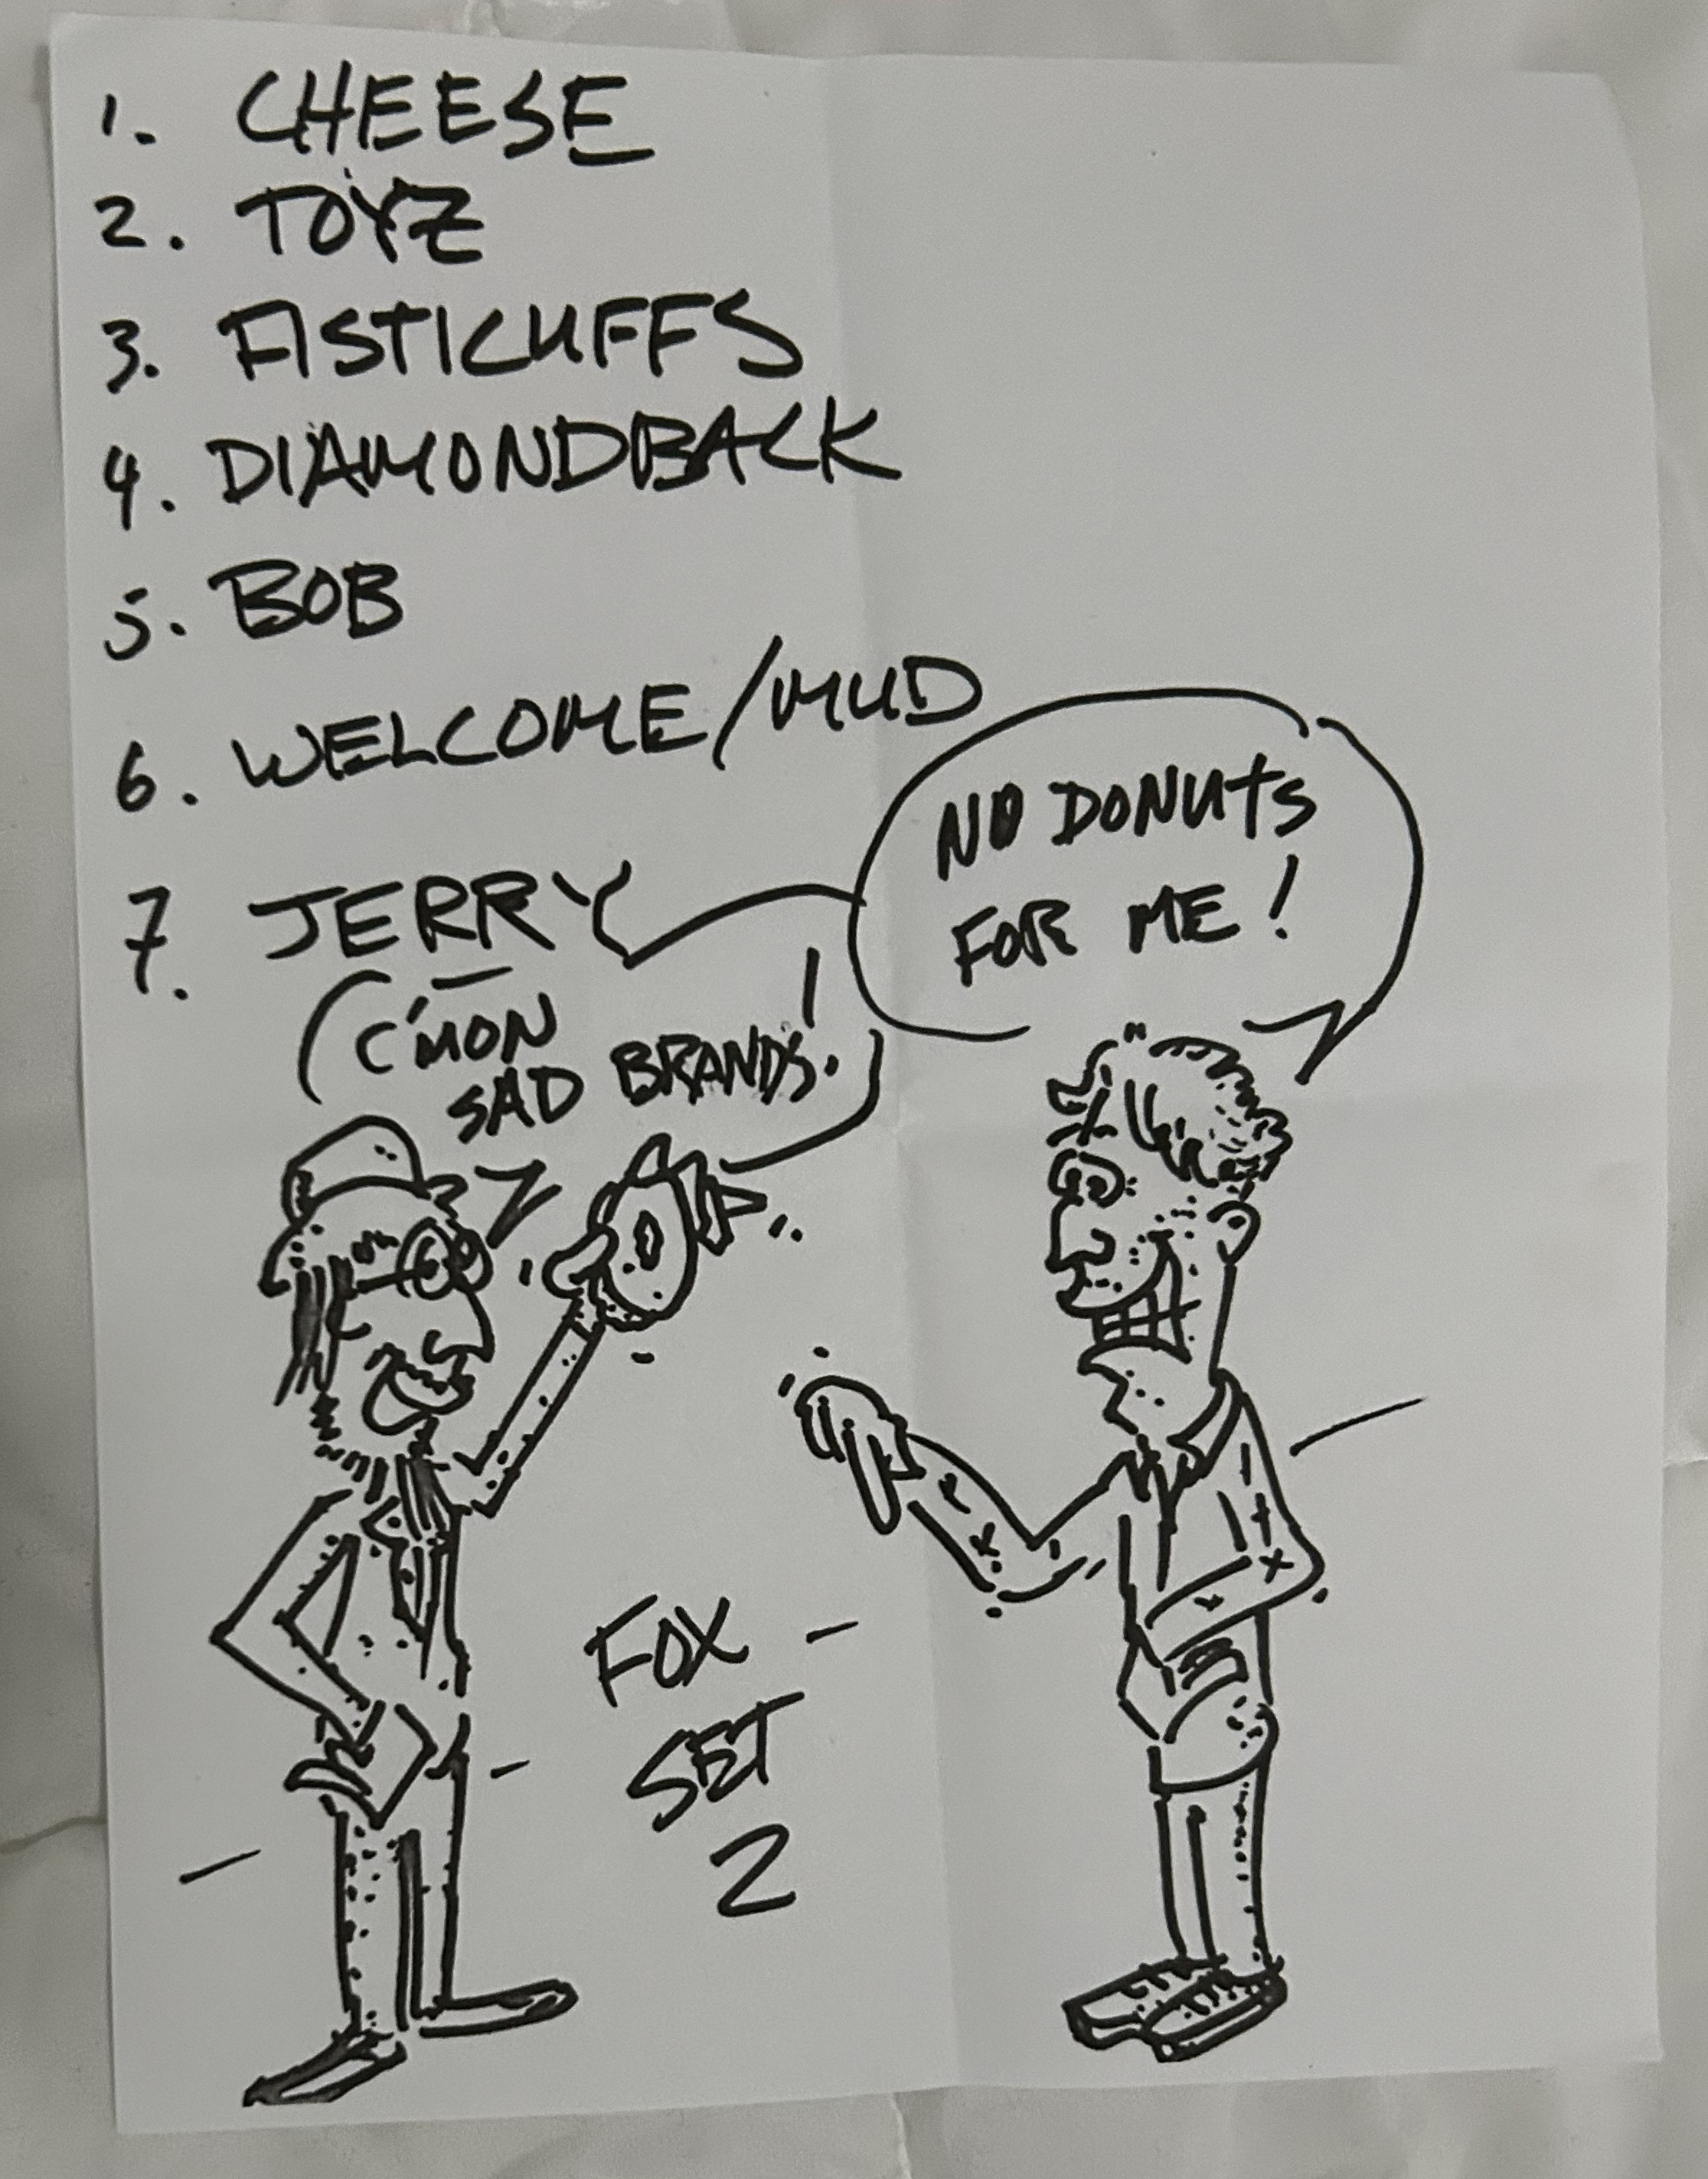 1. CHEESE
2. TOYZ
3. FISTICUFFS
4. DIAMONDBACK
5. BOB
6. WELCOME/MUD
7. JERRY
NO DONUTS
FOR ME!
C'MON
SAD BRANDS!
FOX
SET
2